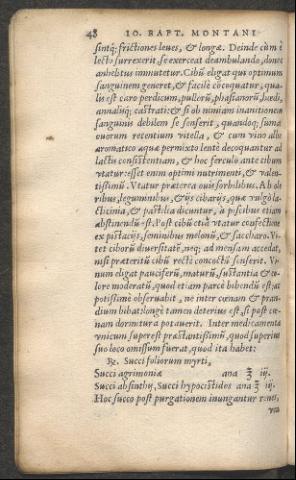 48 IO. BAPT. MONTANI
sintq́; frictiones leues, & longæ. Deinde cùm è
lecto surrexerit, se exerceat deambulando, donec
anhelitus immutetur. Cibũ eligat qui optimum
sanguinem generet, & facilè coquatur, qua-
lis est caro perdicum, pullorũ, phasianorũ, hœdi,
annaliuq́; castrati: & si ob nimiam inanitionem
sanguinis debilem se senserit, quandoq; sumat
ouorum recentium vitella, & cum vino albo
aromatico aquæ permixto lentè decoquantur ad
lactis consistentiam, & hoc ferculo ante cibum
vtatur: esset enim optimi nutrimenti, & valen-
tissimũ. Vtatur præterea ouis sorbilibus. Ab ole
ribus, leguminibus, & ijs cibarijs, quæ vulgò la-
cticinia, & pastilla dicuntur, à piscibus etiam
abstinendũ est. Post cibũ citã vtatur confectione
ex pistacijs, seminibus melonũ, & saccharo. Vi-
tet ciborũ diuersitatẽ, neq; ad mensam accedat,
nisi præteritũ cibũ rectè concoctũ senserit. Vi-
num eligat pauciferũ, maturũ, sustantia & co-
lore moderatũ, quod etiam parcè bibendũ est: at
potissimè obseruabit, ne inter cœnam & pran-
dium bibat: longè tamen deterius est, si post cœ-
nam dormitura potauerit. Inter medicamenta
vnicum superest præstantissimũ, quod superius
suo loco omissum fuerat, quod ita habet:
℞. Succi foliorum myrti,
Succi agrimoniæ ana ℥ iij.
Succi absinthij, Succi hypocistidos ana ℥ iij.
Hoc succo post purgationem inungantur renes,